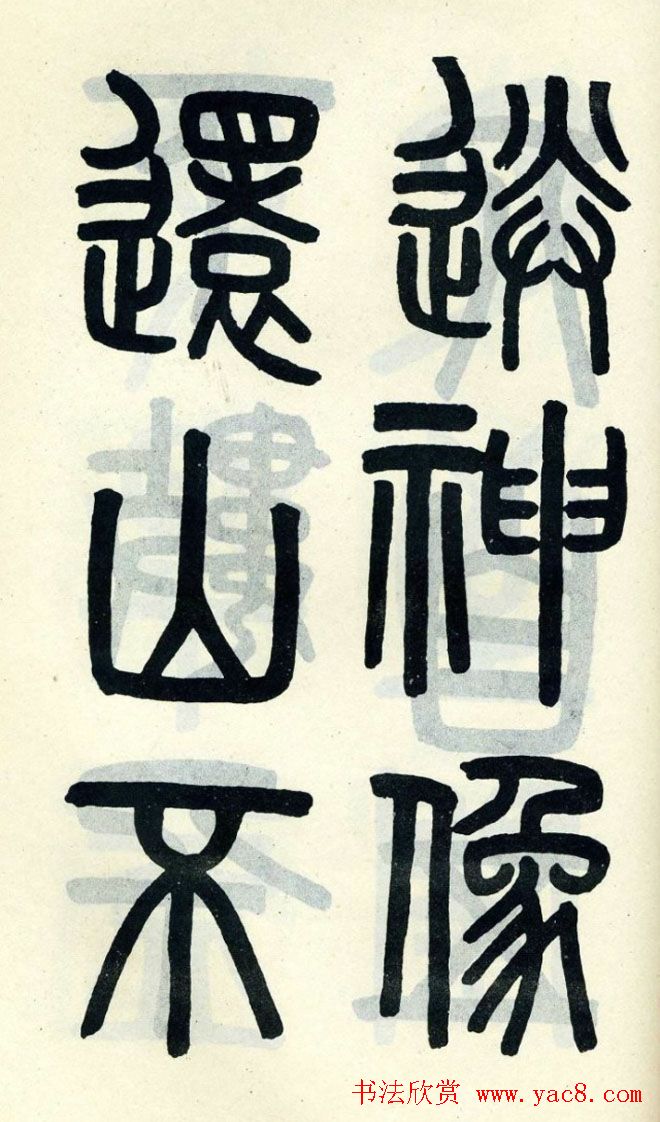 送神像
還山不
书法欣赏 www.yac8.com